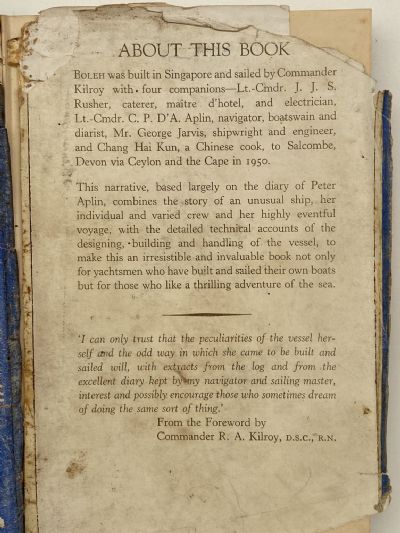 ABOUT THIS BOOK
BOLEH was built in Singapore and sailed by Commander
Kilroy with four companions—Lt.-Cmdr. J. J. S.
Rusher, caterer, maitre d'hotel, and electrician,
Lt.-Cmdr. C. P. D'A. Aplin, navigator, boatswain and
diarist, Mr. George Jarvis, shipwright and engineer,
and Chang Hai Kun, a Chinese cook, to Salcombe,
Devon via Ceylon and the Cape in 1950.
This narrative, based largely on the diary of Peter
Aplin, combines the story of an unusual ship, her
individual and varied crew and her highly eventful
voyage, with the detailed technical accounts of the
designing, building and handling of the vessel, to
make this an irresistible and invaluable book not only
for yachtsmen who have built and sailed their own boats
but for those who like a thrilling adventure of the sea.
'I can only trust that the peculiarities of the vessel her-
self and the odd way in which she came to be built and
sailed will, with extracts from the log and from the
excellent diary kept by my navigator and sailing master,
interest and possibly encourage those who sometimes dream
of doing the same sort of thing.'
From the Foreword by
Commander R. A. Kilroy, D.S.C., R.N.